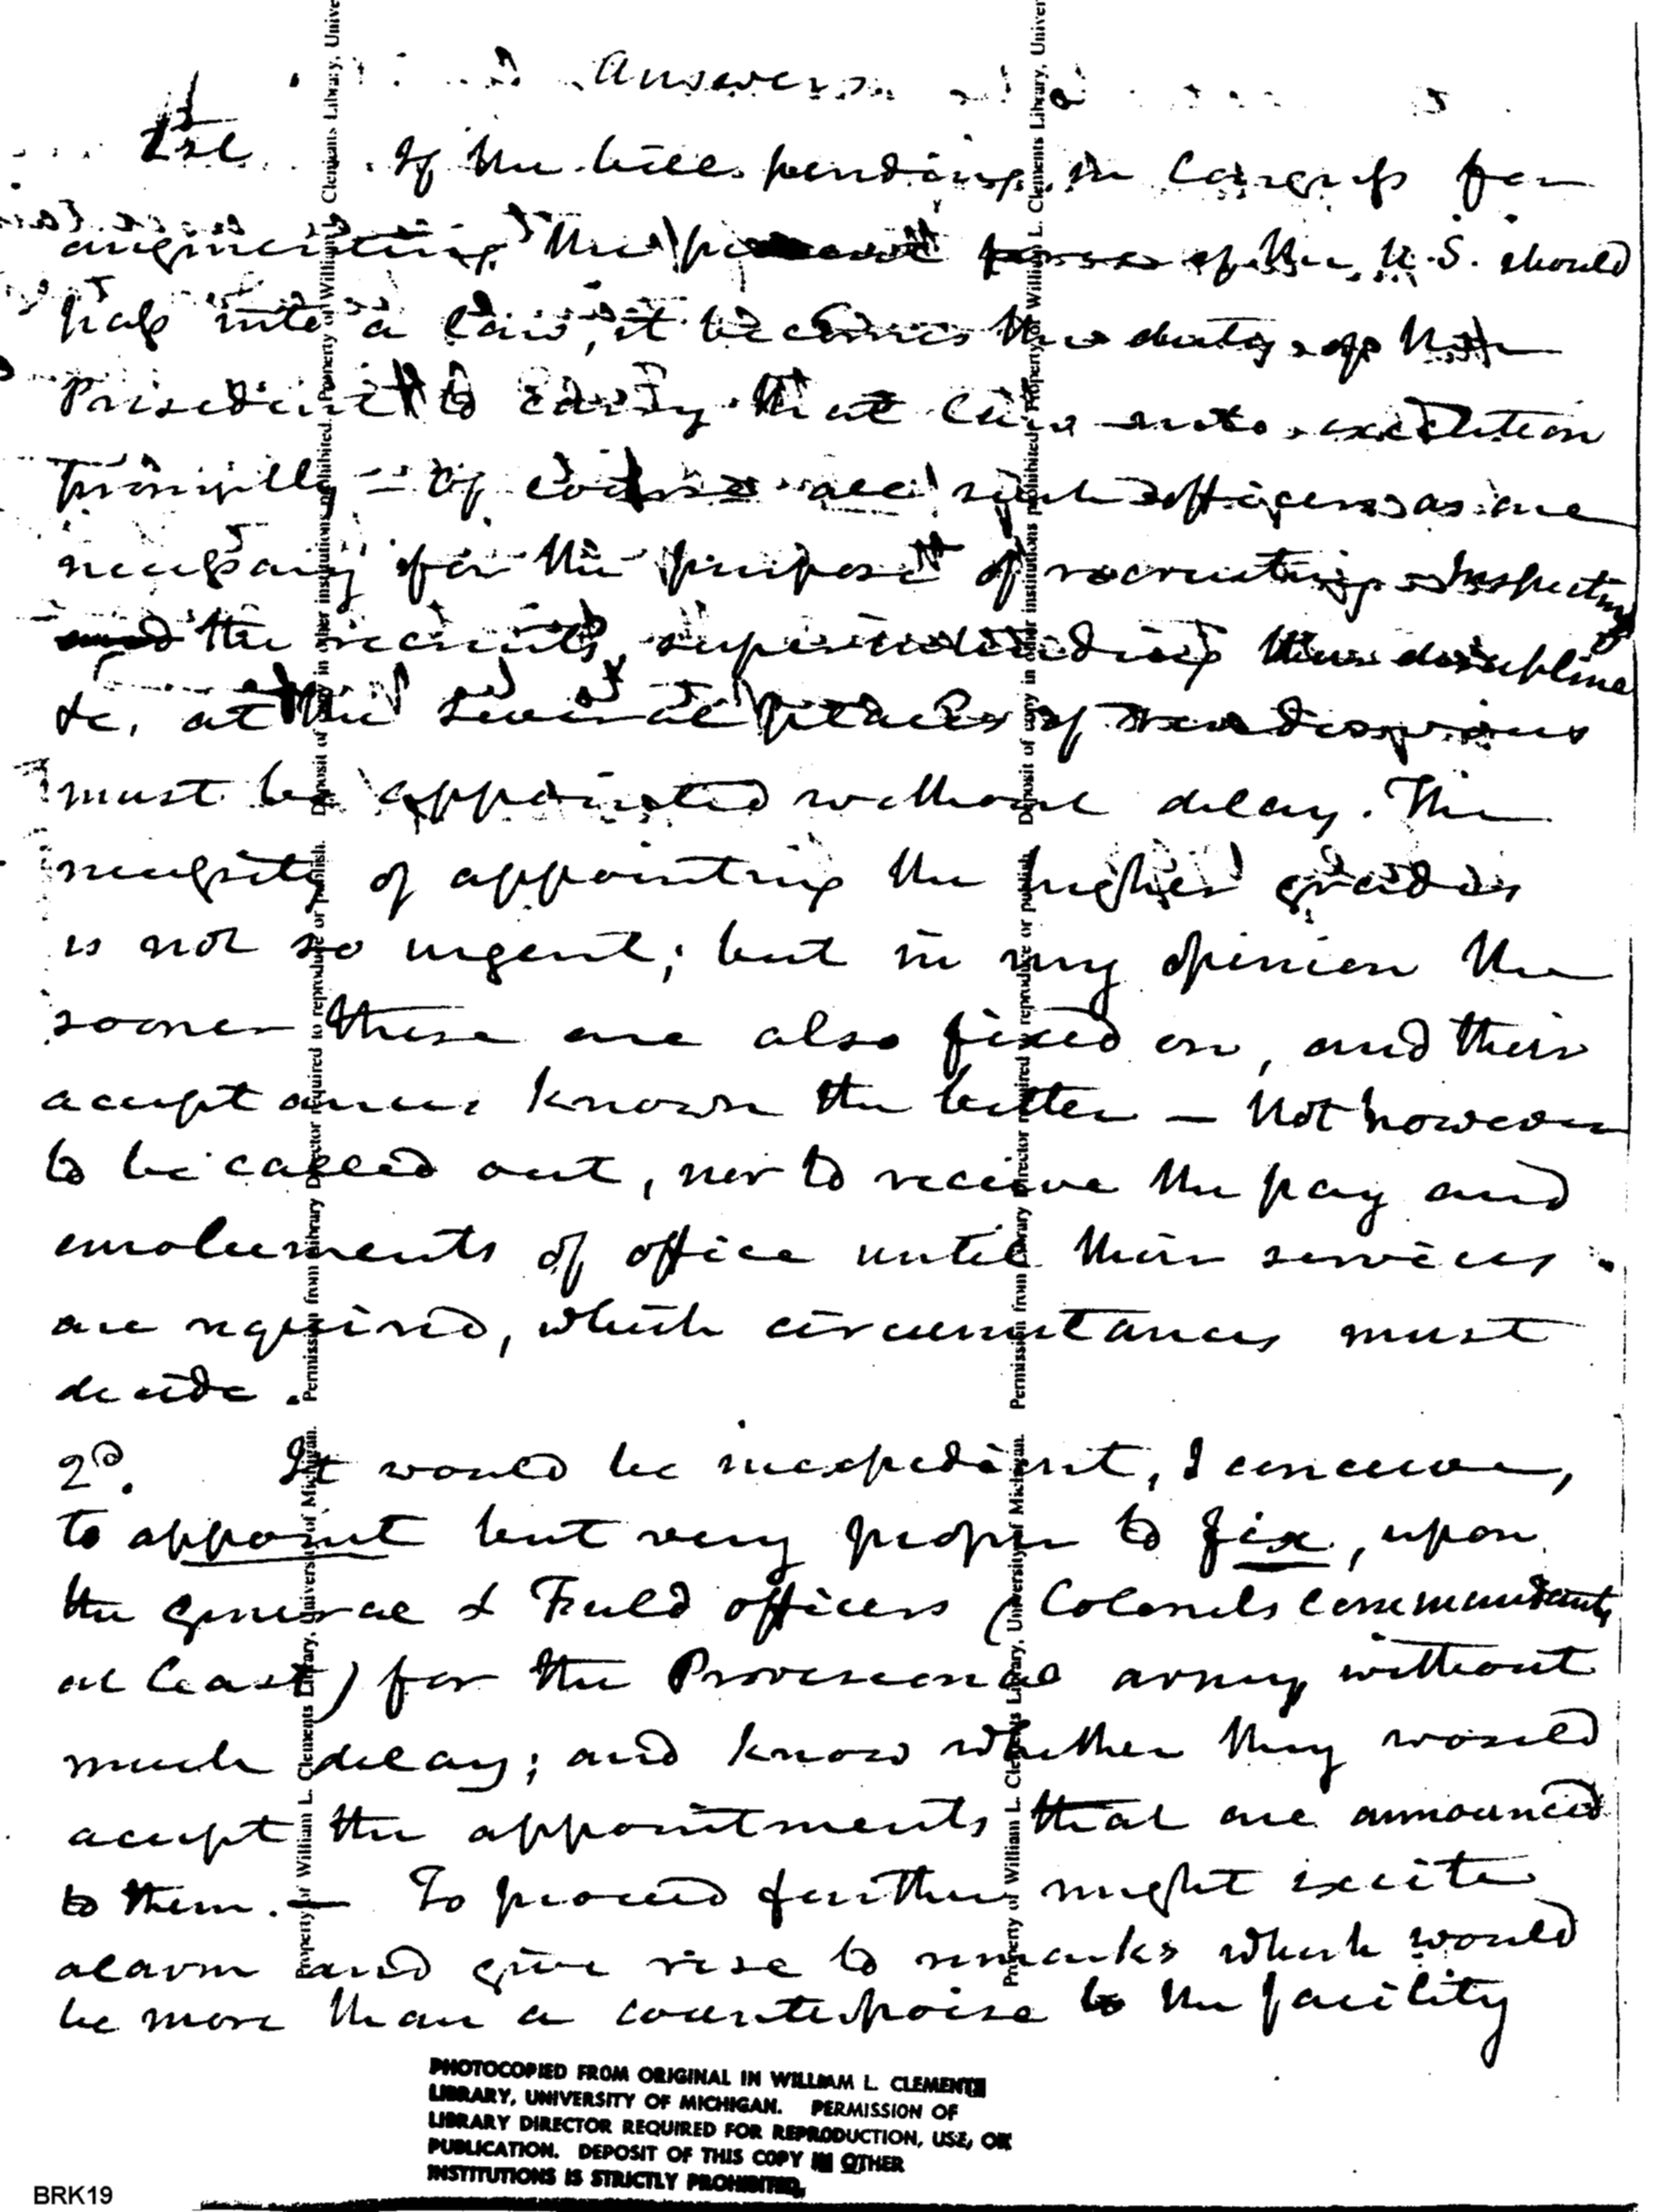 Answers
1st If the bill pending in Congress for
augmenting the present force of the U.S. should
pass into a law, it becomes the duty of the
President to carry that law into execution
promptly – Of course all such officers as are
necessary for the purpose of recruiting – Inspecting
and the recruits, superintending their discipline
&c, at the several places of rendezvous
must be appointed without delay. The
necessity of appointing the higher grades
is not so urgent; but in my opinion the
sooner these are also fixed on, and their
acceptances known the better – Not however
to be called out, nor to receive the pay and
emoluments of office until their services
are required, which circumstances must
decide.
2d. It would be inexpedient, I conceive,
to appoint but very proper to fix, upon
the general & Field officers (Colonels Commandants
at least) for the Provisional army without
much delay; and know whether they would
accept the appointments that are announced
to them. – To proceed further might excite
alarm and give rise to remarks which would
be more than a counterpoise to the facility
PHOTOCOPIED FROM ORIGINAL IN WILLIAM L. CLEMENTS
LIBRARY, UNIVERSITY OF MICHIGAN. PERMISSION OF
LIBRARY DIRECTOR REQUIRED FOR REPRODUCTION, USE, OR
PUBLICATION. DEPOSIT OF THIS COPY IN OTHER
INSTITUTIONS IS STRICTLY PROHIBITED.
BRK19
Property of William L. Clements Library, University of Michigan. Permission from Library Director required to reproduce or publish. Deposit of copy in other institutions prohibited. Property of William L. Clements Library, Unive
Property of William L. Clements Library, University of Michigan. Permission from Library Director required to reproduce or publish. Deposit of copy in other institutions prohibited. Property of William L. Clements Library, Univer